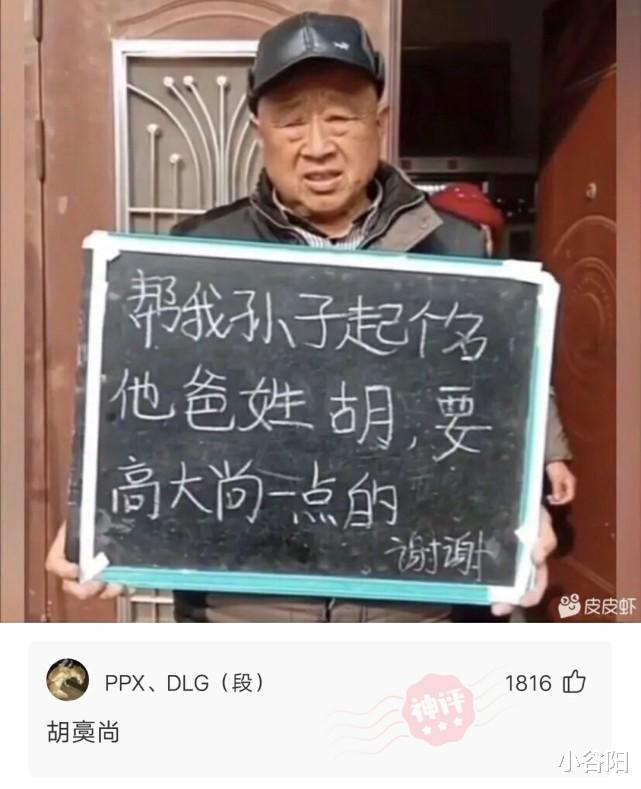 帮我孙子起个名
他爸姓胡,要
高大尚一点的
谢谢
皮皮虾
PPX、DLG（段）
1816
神评
胡奠尚
小谷阳